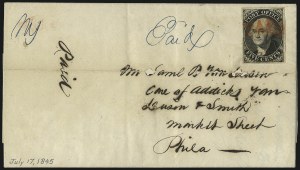 NY
Paid
Paid
POST OFFICE
FIVE CENTS
Mr Saml P.
Care of Addicks Van
Dusen & Smith
Market Street
Phila
July 17, 1845